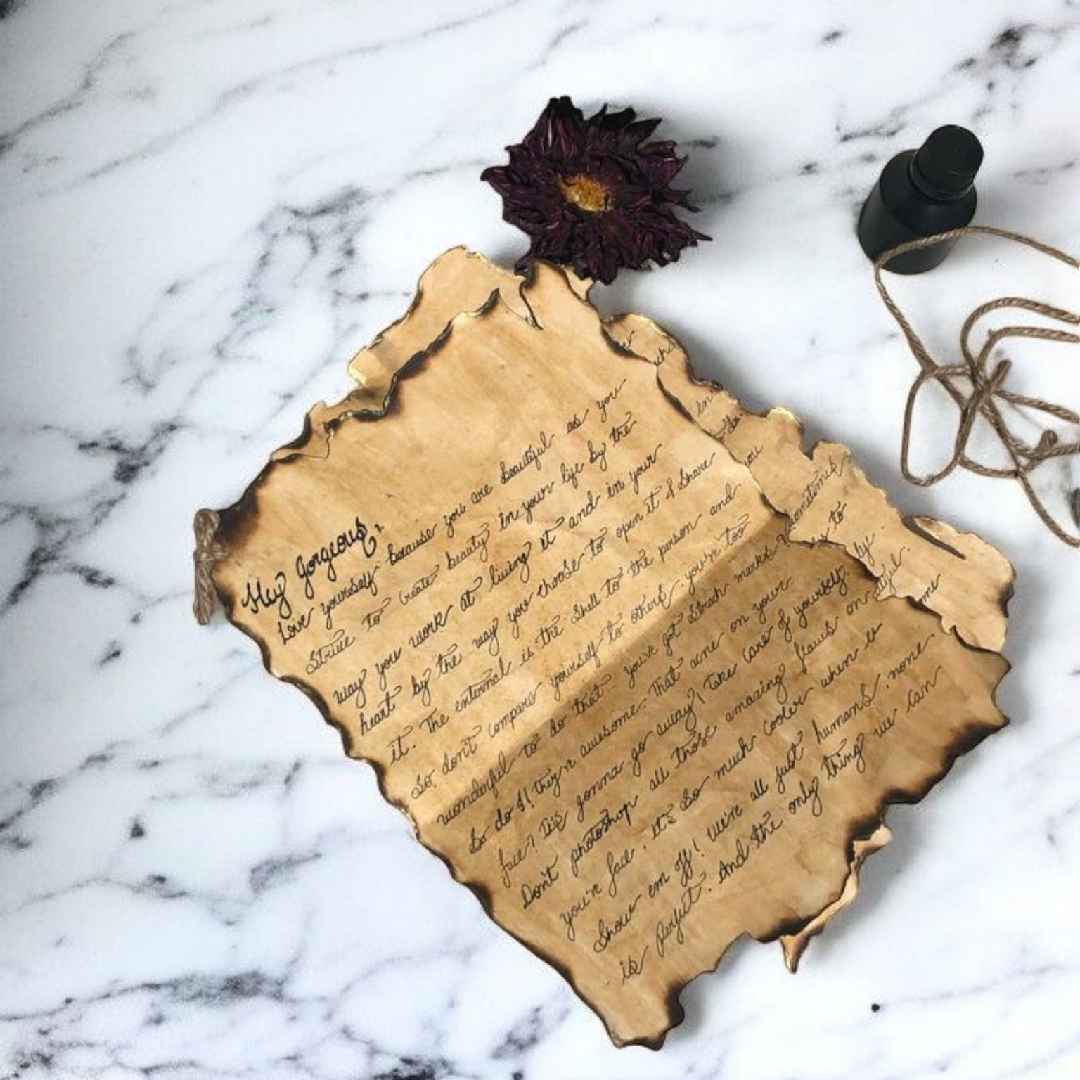 Hey Gorgeous,
Love yourself because you are beautiful as you
Strive to create beauty in your life by the
way you work at living it and in your
heart by the way you choose to open it & Share
it. The external is the Shell to the person and
So don't compare yourself to others. you're too
wonderful to do that. you've got Strech marks?
So do I! they'r awesome. That acne on your
face? It's gonna go away! Take care of yourself.
Don't photoshop all those amazing flaws on
you'r face. It's So much cooler when u
Show em off! We're all just humans. none
is Perfect. And the only thing we can
you
to
by
me